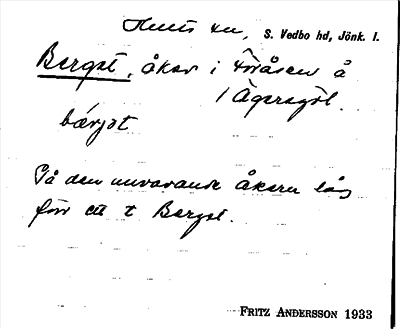 Hults sn, S. Vedbo hd, Jönk. l.
Bergst, åker i Föråsen å
/ Ägersgöl.
På den nuvarande åkern låg
förr ett t Bergst.
FRITZ ANDERSSON 1933